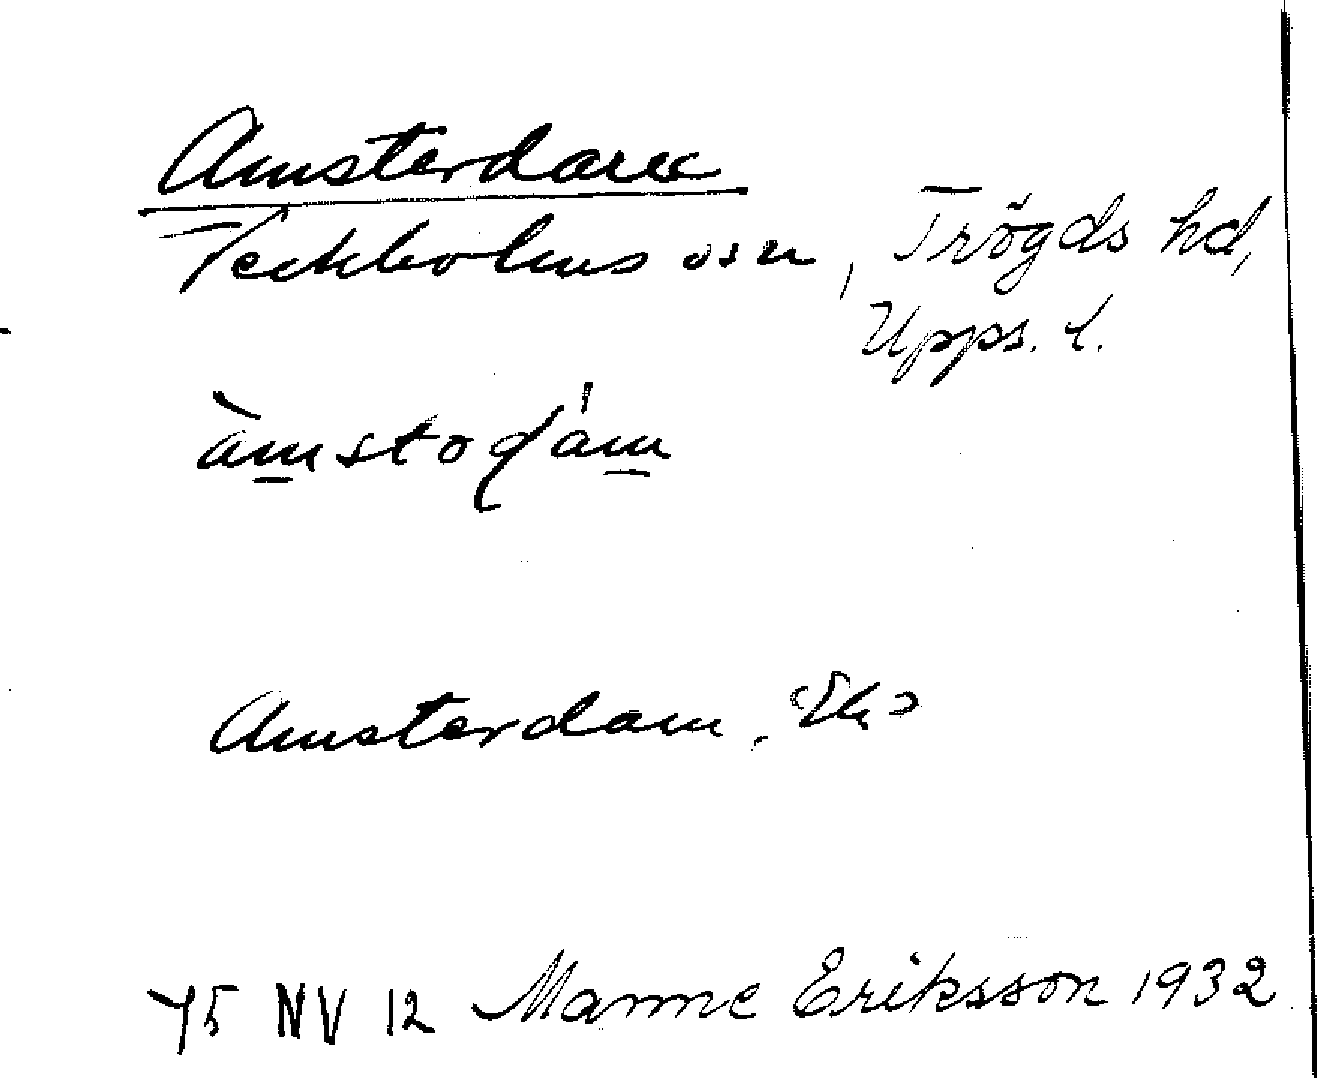 Amsterdam
Teckholms osn, Trögds hd,
Upps. l.
àmstoɖám
Amsterdam, Ek>
75 NV 12 Manne Eriksson 1932